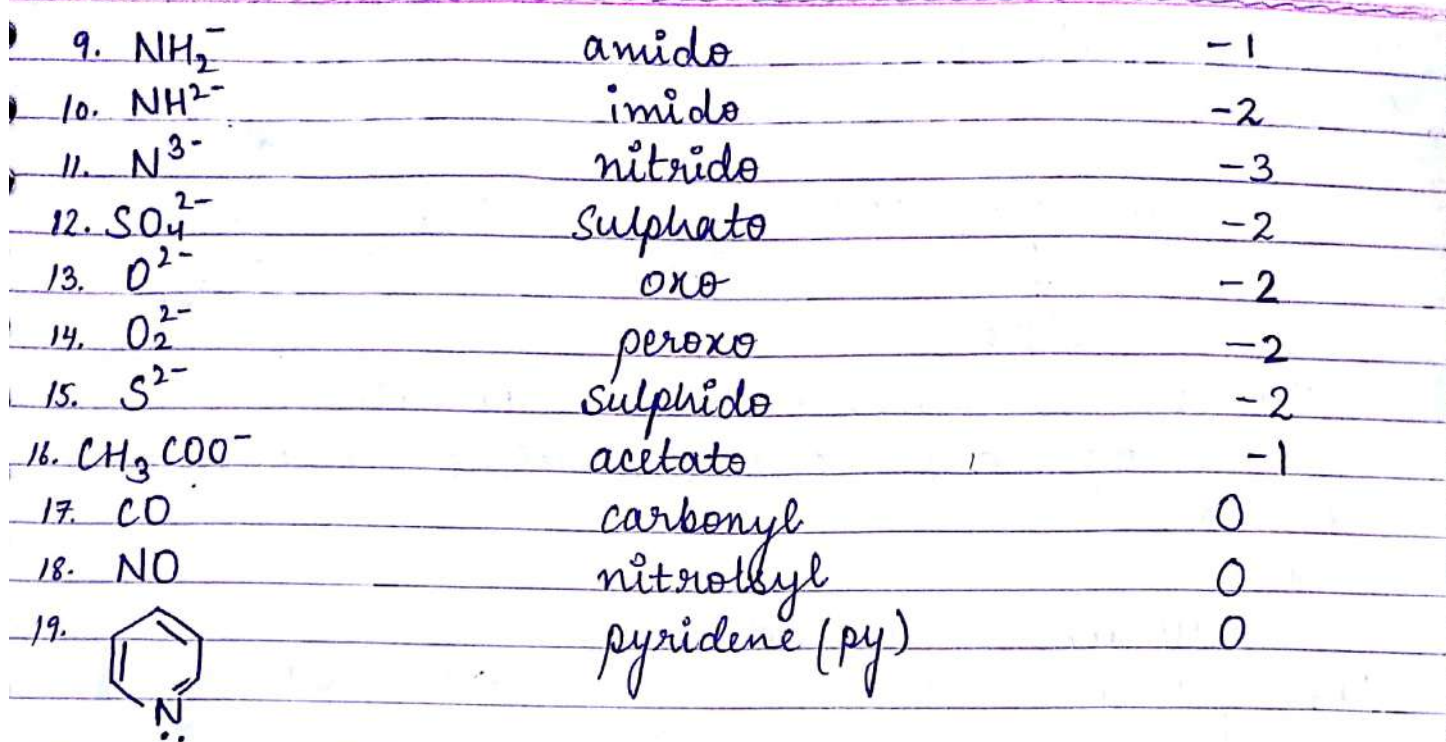 9. NH₂⁻ amido -1
10. NH²⁻ imido -2
11. N³⁻ nitrido -3
12. SO₄²⁻ sulphato -2
13. O²⁻ oxo -2
14. O₂²⁻ peroxo -2
15. S²⁻ sulphido -2
16. CH₃COO⁻ acetato -1
17. CO carbonyl 0
18. NO — 0
19. pyridene (py) 0
N